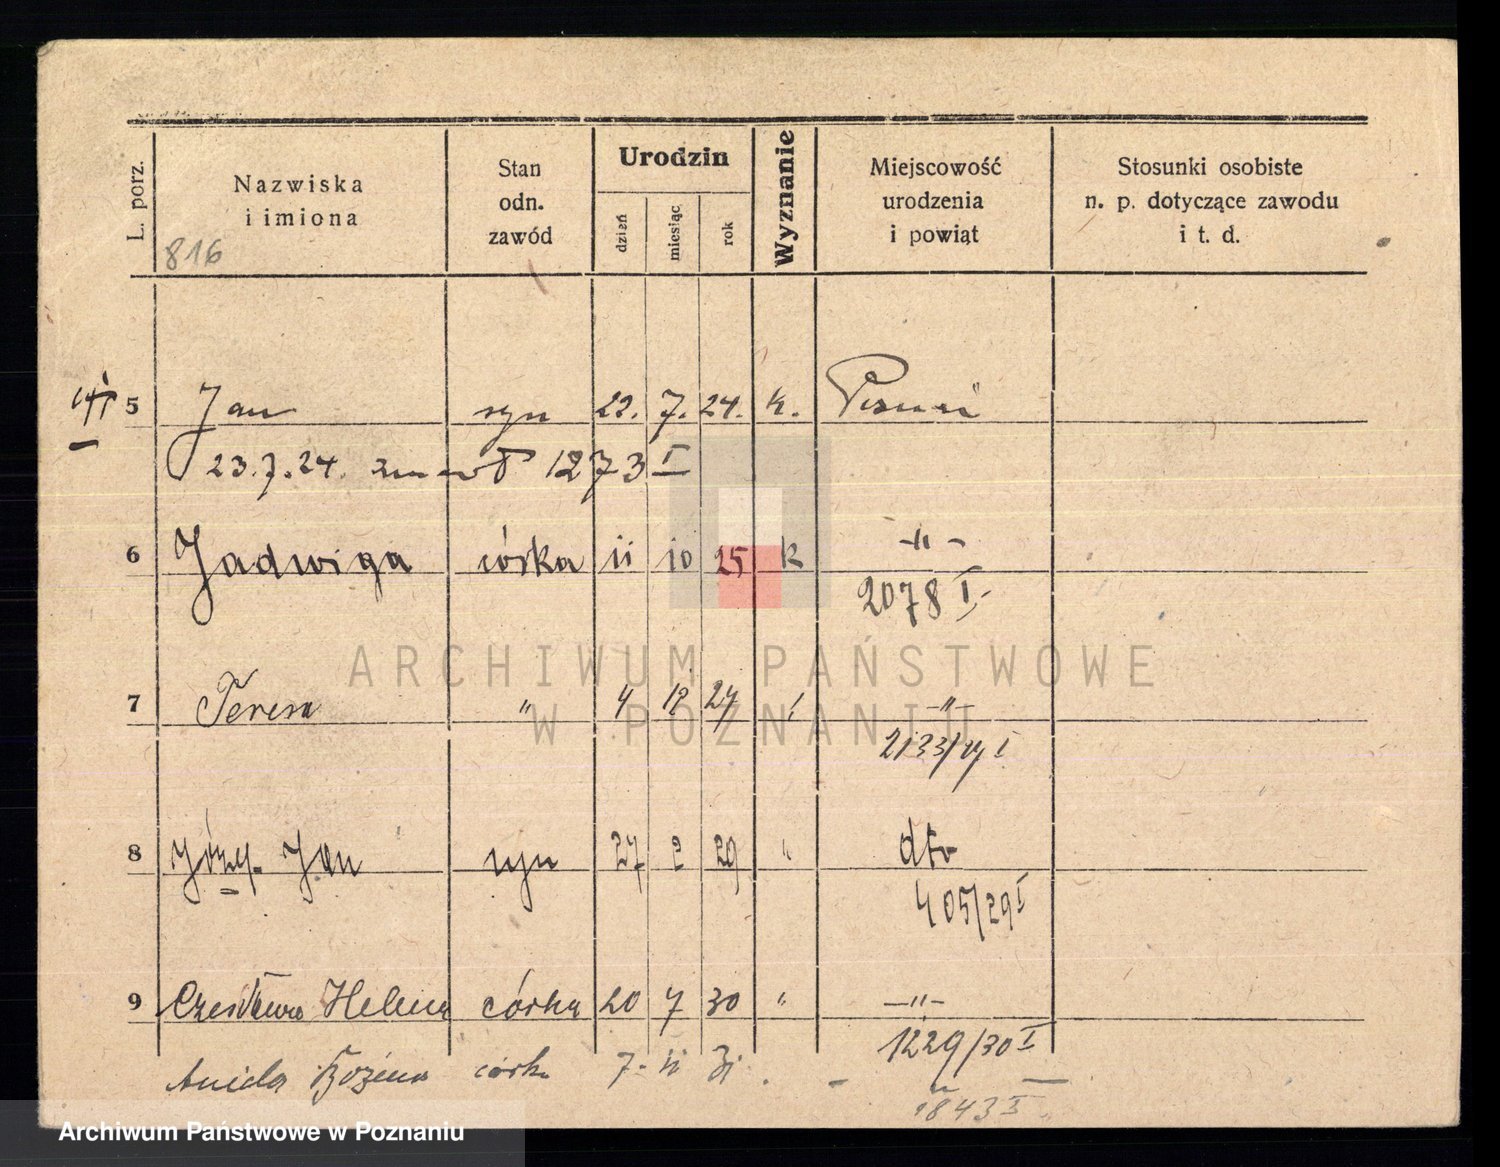 L. porz.
Nazwiska
i imiona
816
Stan
odn.
zawód
Urodzin
dzień
miesiąc
rok
Wyznanie
Miejscowość
urodzenia
i powiąt
Stosunki osobiste
n. p. dotyczące zawodu
i t. d.
5 Jan syn 22. 7. 24. k. Poznań
23.7.24. 1273 I
6 Jadwiga córka 11 10 25 k -"-
2078 I
7 Teresa " 4 12 27 -"-
2133/27 I
8 Józef Jan syn 27 2 29 " dto
405/29 I
9 Czesława Helena córka 20 7 30 " -"-
1229/30 I
Aniela Bożena córk 7. 11 31. - " -
1843 I
ARCHIWUM PAŃSTWOWE
W POZNANIU
Archiwum Państwowe w Poznaniu